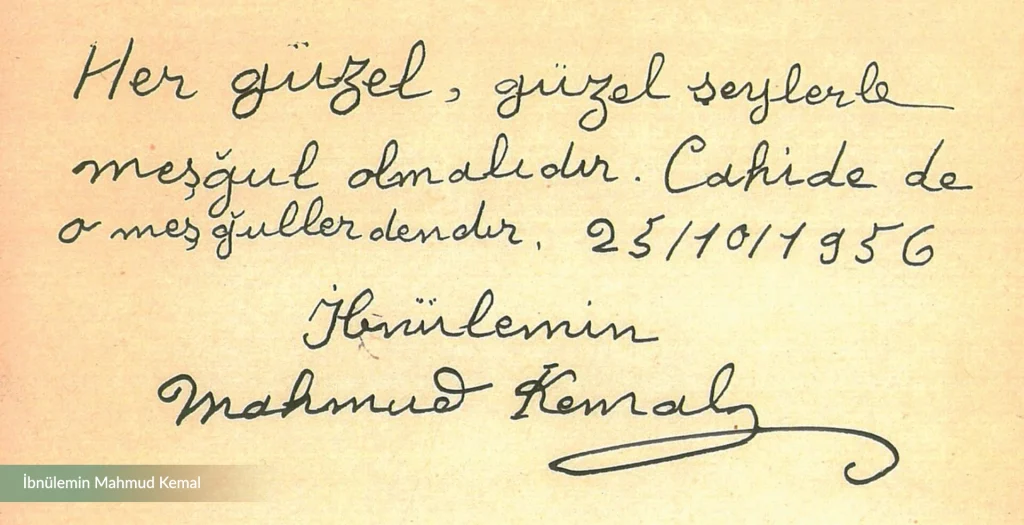 Her güzel, güzel şeylerle
meşğul olmalıdır. Cahide de
o meşğullerdendır. 25/10/1956
İbnülemin
Mahmud Kemal
İbnülemin Mahmud Kemal